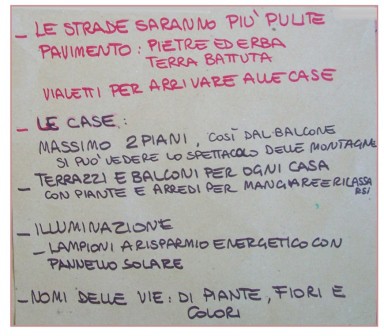 - LE STRADE SARANNO PIU' PULITE
PAVIMENTO: PIETRE ED ERBA
TERRA BATTUTA
VIALETTI PER ARRIVARE ALLE CASE
- LE CASE:
MASSIMO 2 PIANI, COSÌ DAL BALCONE
SI PUO' VEDERE LO SPETTACOLO DELLE MONTAGNE
- TERRAZZI E BALCONI PER OGNI CASA
CON PIANTE E ARREDI PER MANGIARE E RILASSA
RSI
- ILLUMINAZIONE
- LAMPIONI A RISPARMIO ENERGETICO CON
PANNELLO SOLARE
- NOMI DELLE VIE: DI PIANTE, FIORI E
COLORI